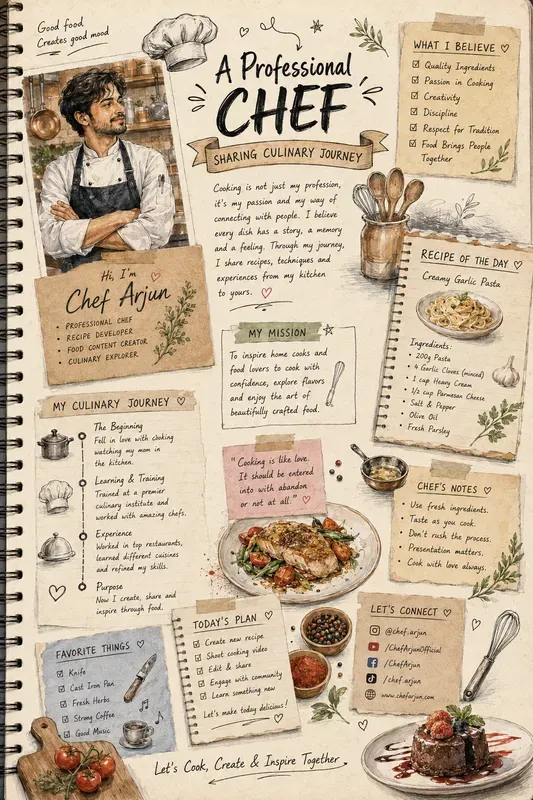 Good food,
Creates good mood
A Professional
CHEF
SHARING CULINARY JOURNEY
Cooking is not just my profession,
it's my passion and my way of
connecting with people. I believe
every dish has a story, a memory
and a feeling. Through my journey,
I share recipes, techniques and
experiences from my kitchen
to yours.
WHAT I BELIEVE
Quality Ingredients
Passion in Cooking
Creativity
Discipline
Respect for Tradition
Food Brings People
Together
Hi, I'm
Chef Arjun
• PROFESSIONAL CHEF
• RECIPE DEVELOPER
• FOOD CONTENT CREATOR
• CULINARY EXPLORER
RECIPE OF THE DAY
Creamy Garlic Pasta
Ingredients:
• 200g Pasta
• 4 Garlic Cloves (minced)
• 1 cup Heavy Cream
• 1/2 cup Parmesan Cheese
• Salt & Pepper
• Olive Oil
• Fresh Parsley
MY MISSION
To inspire home cooks and
food lovers to cook with
confidence, explore flavors
and enjoy the art of
beautifully crafted food.
MY CULINARY JOURNEY
The Beginning
Fell in love with cooking
watching my mom in
the kitchen.
Learning & Training
Trained at a premier
culinary institute and
worked with amazing chefs.
Experience
Worked in top restaurants,
learned different cuisines
and refined my skills.
Purpose
Now I create, share and
inspire through food.
"Cooking is like love.
It should be entered
into with abandon
or not at all."
CHEF'S NOTES
Use fresh ingredients.
Taste as you cook.
Don't rush the process.
Presentation matters.
Cook with love always.
FAVORITE THINGS
Knife
Cast Iron Pan
Fresh Herbs
Strong Coffee
Good Music
TODAY'S PLAN
Create new recipe
Shoot cooking video
Edit & share
Engage with community
Learn something new
Let's make today delicious!
LET'S CONNECT
@chef.arjun
/ChefArjunOfficial
/ChefArjun
/chef.arjun
www.chefarjun.com
Let's Cook, Create & Inspire Together